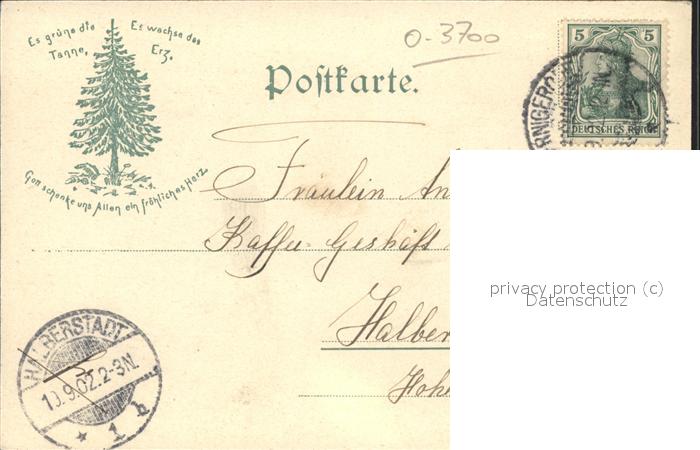 Es grüne die Tanne, Es wachse das Erz.
Gott schenke uns Allen ein fröhliches Herz
O-3700
Postkarte.
5 5
DEUTSCHES REICH
Fräulein An
Kaffee-Geshäft
Halber
Hohe
HALBERSTADT
10.9.02.2-3N.
* 1 b
privacy protection (c)
Datenschutz